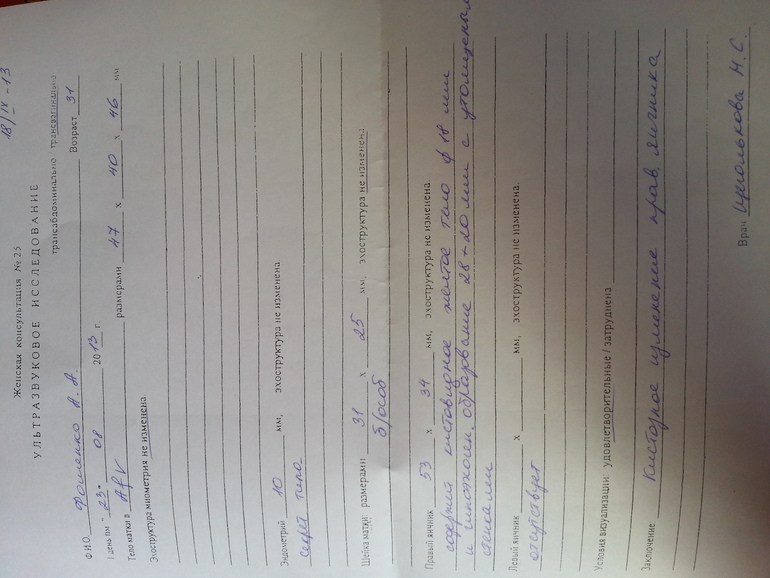 18/IX-13
Женская консультация № 25
УЛЬТРАЗВУКОВОЕ ИССЛЕДОВАНИЕ
трансабдоминально / трансвагинально
Ф.И.О. Фоменко А. А. Возраст 31
1 день пм "23" 08 2013 г.
Тело матки в Afv размерами 47 х 40 х 46 мм
Эхоструктура миометрия не изменена
Эндометрий 10 мм, эхоструктура не изменена
секрет. типа
Шейка матки размерами 31 х 25 мм, эхоструктура не изменена
б/особ
Правый яичник 53 х 34 мм, эхоструктура не изменена
содержит кистовидное желтое тело ф 18 мм
и образование 28*20 мм с утолщенными
стенками
Левый яичник х мм, эхоструктура не изменена.
отсутствует
Условия визуализации: удовлетворительные / затруднена
Заключение: Кистозное изменение прав. яичника
Врач М. С.